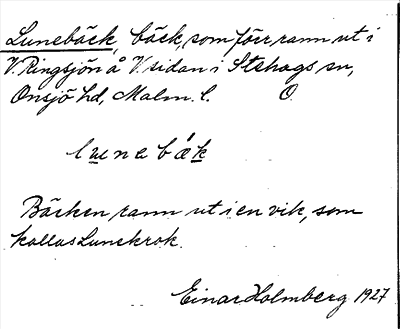 Lunebäck, bäck, som förr rann ut i
V. Ringsjön å V. sidan i Stehags sn,
Onsjö hd, Malm. l. O.
lu̲nebǽk̲
Bäcken rann ut i en vik, som
kallas Lunekrok.
Einar Holmberg 1927